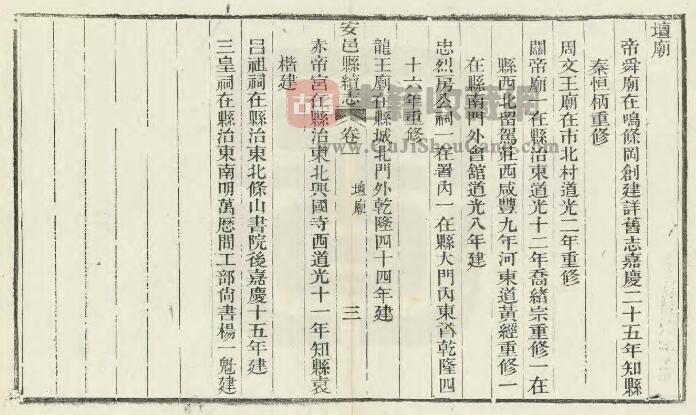 壇廟
帝舜廟在鳴條岡創建詳舊志嘉慶二十五年知縣
秦恒柄重修
周文王廟在市北村道光二年重修
關帝廟一在縣治東道光十二年喬緒宗重修一在
縣西北留駕莊西咸豐九年河東道黃經重修一
在縣南門外會館道光八年建
忠烈房公祠一在署內一在縣大門內東首乾隆四
十六年重修
龍王廟在縣城北門外乾隆四十四年建
安邑縣續志 卷二 壇廟 三
赤帝宮在縣治東北興國寺西道光十一年知縣袁
楷建
呂祖祠在縣治東北條山書院後嘉慶十五年建
三皇祠在縣治東南明萬厯間工部尙書楊一魁建
www.GuJiShouCang.com